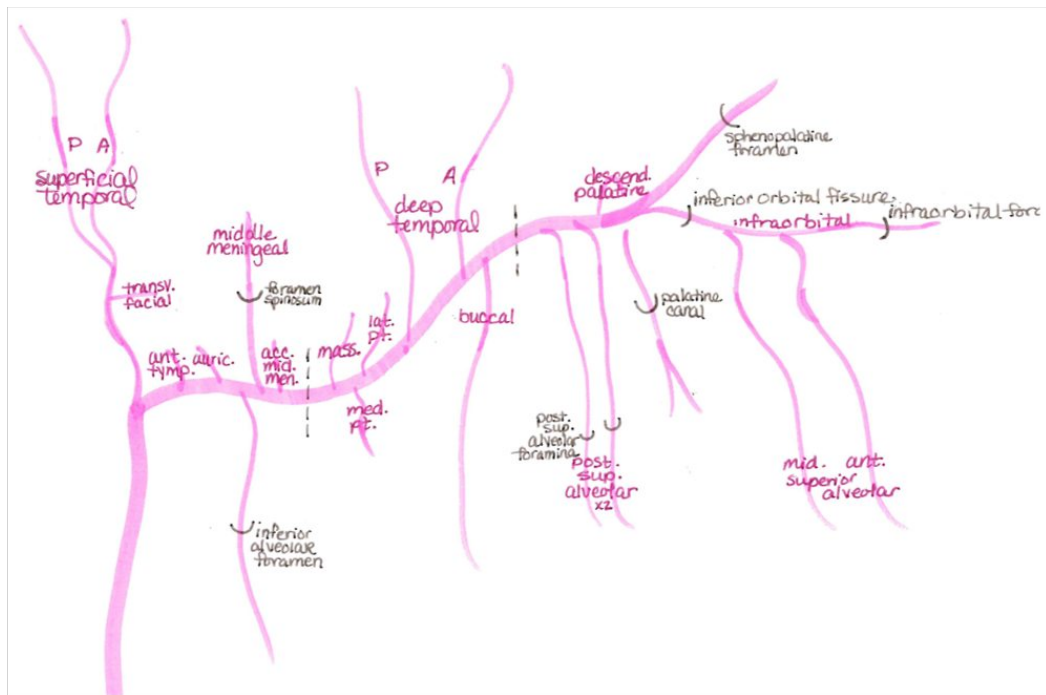 P A
superficial
temporal
transv.
facial
middle
meningeal
foramen
spinosum
ant.
tymp.
auric.
acc.
mid.
men.
mass.
lat.
pt.
med.
pt.
inferior
alveolar
foramen
P
A
deep
temporal
buccal
descend.
palatine
sphenopalatine
foramen
inferior orbital fissure
infraorbital
infraorbital forc
palatine
canal
post.
sup.
alveolar
foramina
post.
sup.
alveolar
x2
mid. ant.
superior
alveolar